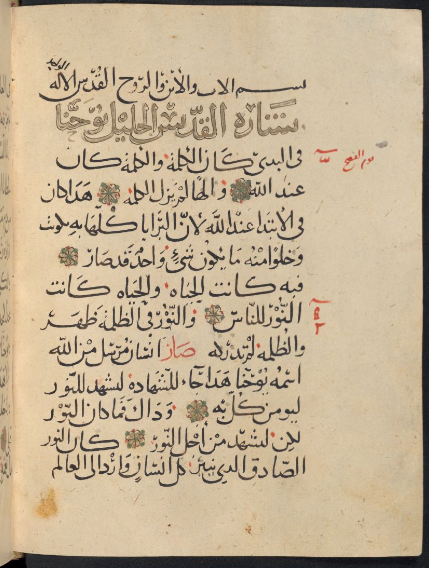 بسم الاب والابن والروح القدس الاله
الواحد
بشارة القديس الجليل يوحنا
في البدي كان الكلمة والكلمة كان
عند الله والها لم يزل الكلمة هذا كان
في الابتدا عند الله لان البرايا كلها به كونت
وخلوا منه ما يكون شيء واحد قد صار
فيه كانت الحياه والحياه كانت
النور للناس والنور في الظلمة ظهر
والظلمة لم تدركه صار انسان مرسل من الله
اسمه يوحنا هذا جاء للشهادة ليشهد للنور
ليومن كل به وذاك فما كان النور
لكن ليشهد من اجل النور كان النور
الصادق الذي ينير كل انسان وارد الى العالم
يوم الفصح